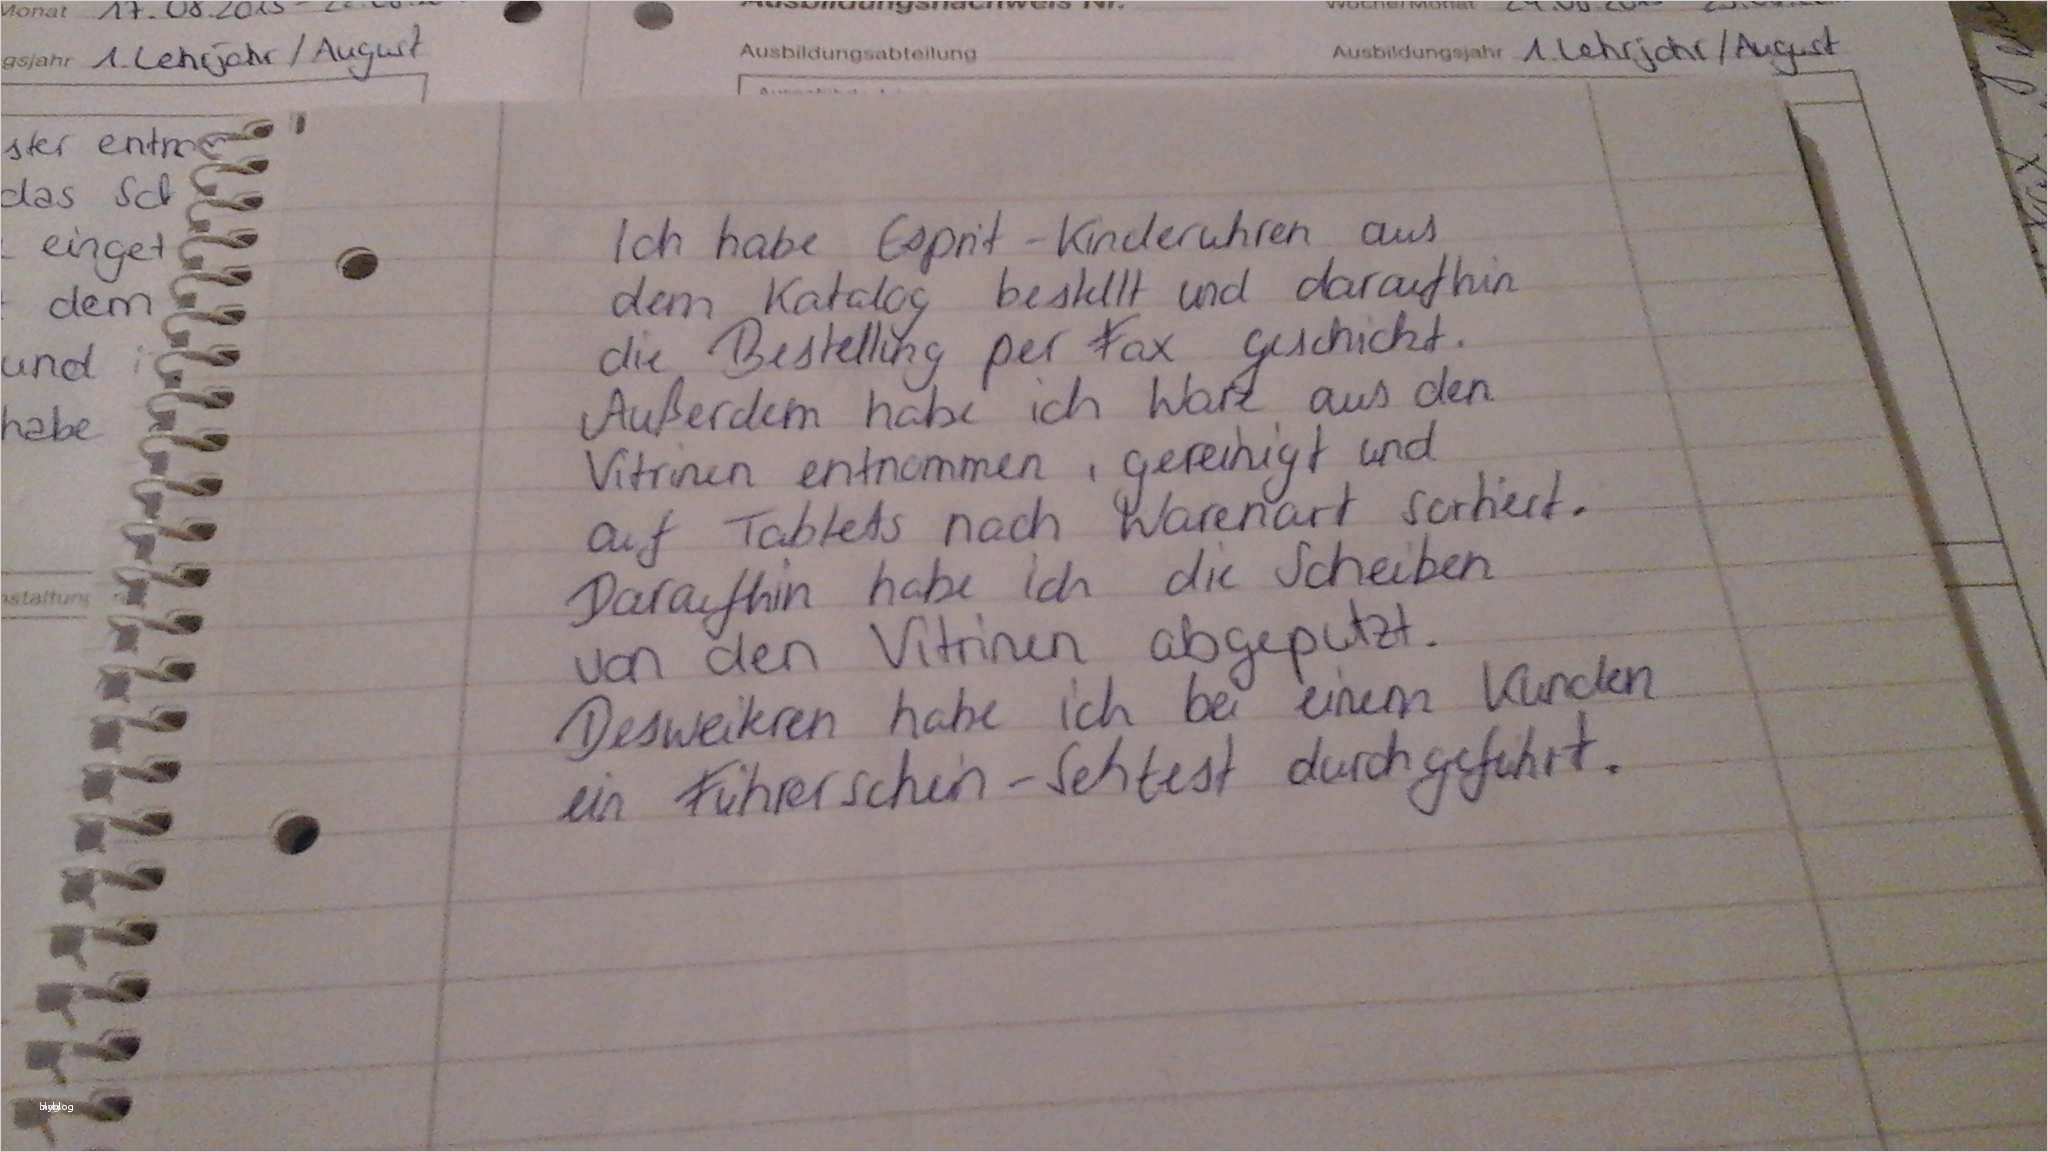 Monat 17.08.2015 -
Ausbildungsnachweis Nr.
gsjahr 1. Lehrjahr / August
Ausbildungsabteilung
Ausbildungsjahr 1. Lehrjahr / August
das
dem
und
habe
Ich habe Esprit - Kinderuhren aus
dem Katalog bestellt und daraufhin
die Bestellung per Fax geschickt.
Außerdem habe ich Ware aus den
Vitrinen entnommen, gereinigt und
auf Tabletts nach Warenart sortiert.
Daraufhin habe ich die Scheiben
von den Vitrinen abgeputzt.
Desweiteren habe ich bei einem Kunden
ein Führerschein - Sehtest durchgeführt.